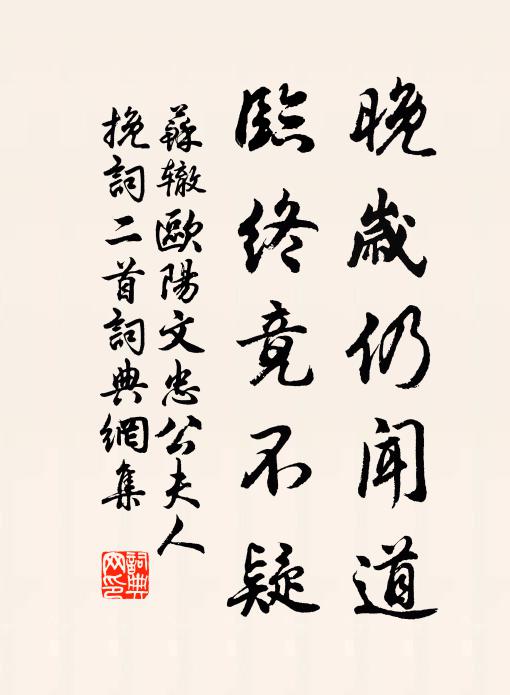 晚歲仍闻道
臨终竟不疑
蘇辙歐陽文忠公夫人
挽詞二首詞典網集
詞典网印